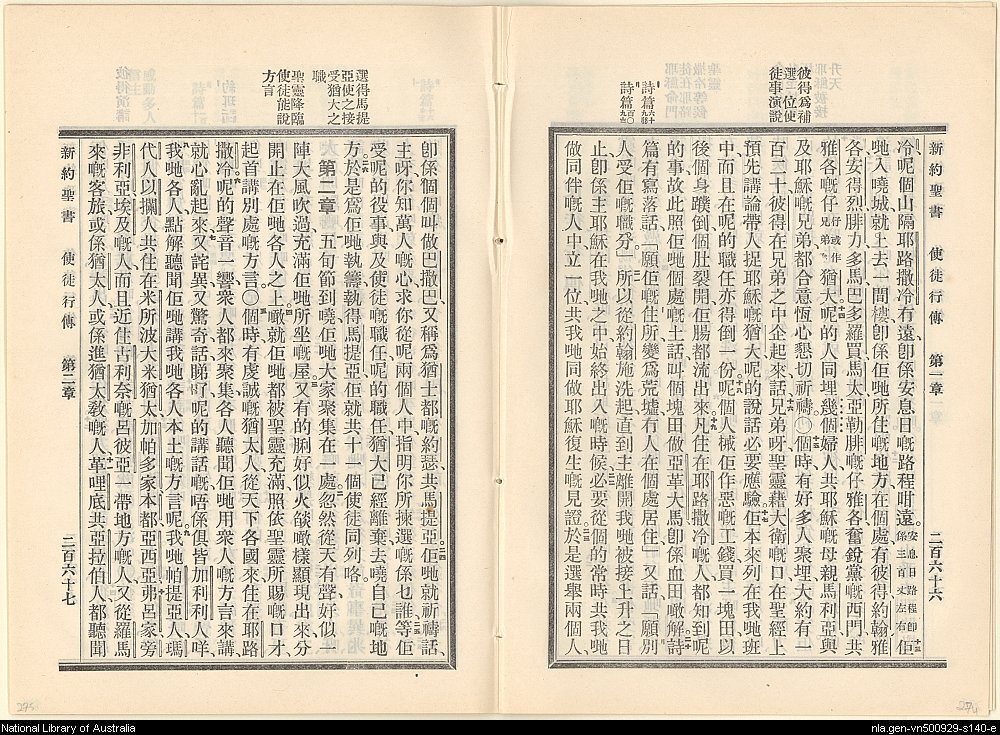 彼得爲補
選一位使
徒事演說
詩篇六十九篇
詩篇百〇九
新約聖書 使徒行傳 第一章 二百六十六
冷呢個山隔耶路撒冷有遠、卽係安息日嘅路程咁遠。安息日路程卽係三百丈左右 佢
哋入嘵城就上去一間樓、卽係佢哋所住嘅地方、在個處有彼得、約翰、雅
各、安得烈、腓力、多馬、巴多羅買、馬太、亞勒腓嘅仔雅各、奮銳黨嘅西門、共
雅各嘅仔仔或作兄弟猶大、呢的人同埋幾個婦人、共耶穌嘅母親馬利亞、與
及耶穌嘅兄弟、都合意恆心懇切祈禱。〇個時有好多人聚埋、大約有一
百二十、彼得在兄弟之中企起來話、兄弟呀、聖靈藉大衛嘅口、在聖經上
預先講論帶人捉耶穌嘅猶大、呢的說話必要應驗、佢本來列在我哋班
中、而且在呢的職任亦得倒一份。呢個人械佢作惡嘅工錢、買一塊田、以
後個身蹼倒、個肚裂開、佢腸都流出來、凡住在耶路撒冷嘅人都知到呢
的事、故此照佢哋個處嘅土話、叫個塊田做亞革大馬、卽係血田嘅解。詩
篇有寫落話、「願佢嘅住所變爲荒墟、冇人在個處居住、」又話、「願別
人受佢嘅職分。」所以從約翰施洗起、直到主離開我哋被接上升之日
止、卽係主耶穌在我哋之中、始終出入嘅時候、必要從個的常時共我哋
做同伴嘅人中、立一位共我哋同做耶穌復生嘅見證、於是選舉兩個人、
選得馬提
亞使之接
受猶大之
職
聖靈降臨
使徒能說
方言
卽係個個叫做巴撒巴又稱爲猶士都嘅約瑟、共馬提亞。佢哋就祈禱話、
主呀、你知萬人嘅心、求你從呢兩個人中、指明你所揀選嘅係乜誰、等佢
受呢的役事、與及使徒嘅職任、呢的職任猶大已經離棄去嘵自己嘅地
方。於是爲佢哋執籌、執得馬提亞、佢就共十一個使徒同列咯。
第二章 五旬節到嘵、佢哋大家聚集在一處、忽然從天有聲好似一
陣大風吹過、充滿佢哋所坐嘅屋、又有的脷好似火燄噉樣、顯現出來、分
開止在佢哋各人之上、噉就佢哋都被聖靈充滿、照依聖靈所賜嘅口才、
起首講別處嘅方言。〇個時有虔誠嘅猶太人、從天下各國來、住在耶路
撒冷。呢的聲音一響、衆人都來聚集、各人聽聞佢哋用衆人嘅方言來講、
就心亂起來、又詫異又驚奇話、睇吓呢的講話嘅、唔係俱皆加利利人咩、
我哋各人點解聽聞佢哋講我哋各人本土嘅方言呢、我哋帕提亞人、瑪
代人、以攔人、共住在米所波大米、猶太、加帕多家、本都、亞西亞、弗呂家、旁
非利亞、埃及嘅人、而且近住古利奈嘅呂彼亞一帶地方嘅人、又從羅馬
來嘅客旅、或係猶太人、或係進猶太教嘅人、革哩底共亞拉伯人、都聽聞
新約聖書 使徒行傳 第二章 二百六十七
275
274
National Library of Australia
nla.gen-vn500929-s140-e